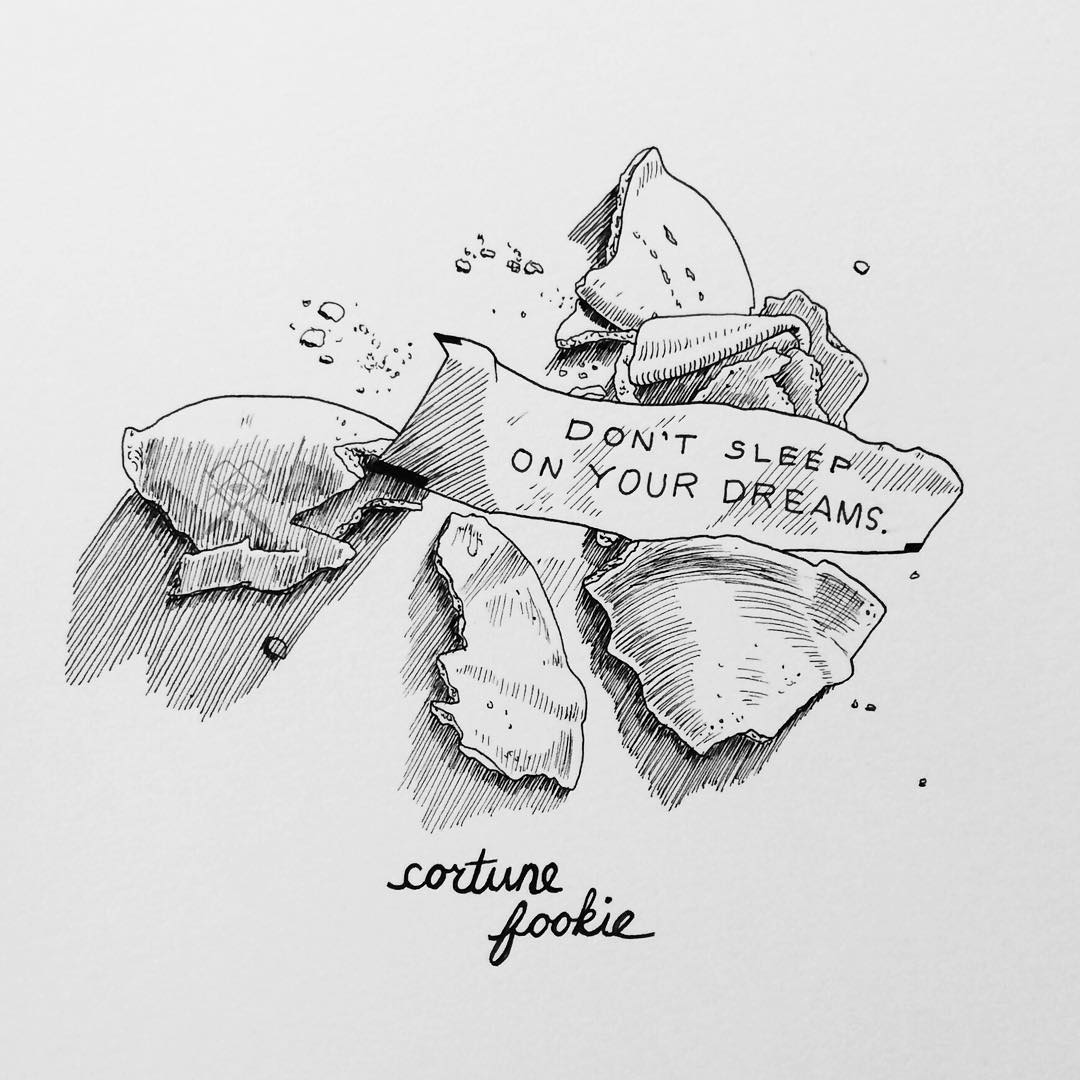 DON'T SLEEP
ON YOUR DREAMS.
cortune
fookie